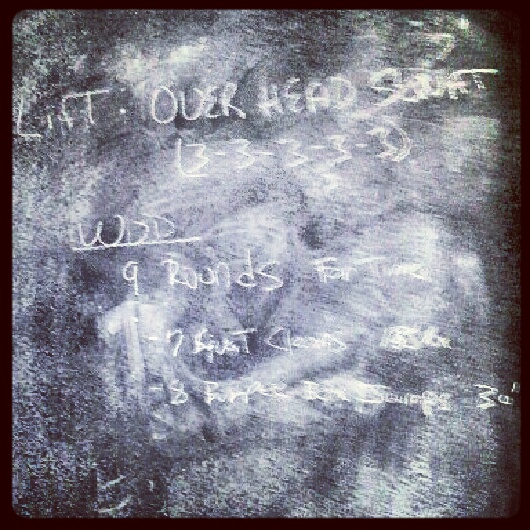 LIFT: OVERHEAD SQUAT
(3-3-3-3-3)
WOD
9 Rounds For Time
-7 Squat Cleans
-8 Jumps 30"